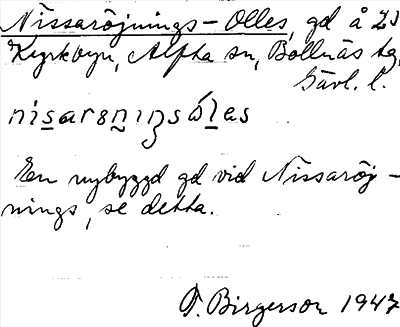 Nissaröjnings-Olles, gd å 23
Kyrkbyn, Alfta sn, Bollnäs tg,
Gävl. l.
nisarönıŋsólas
En nybyggd gd vid Nissaröj-
nings, se detta.
F. Birgerson 1947